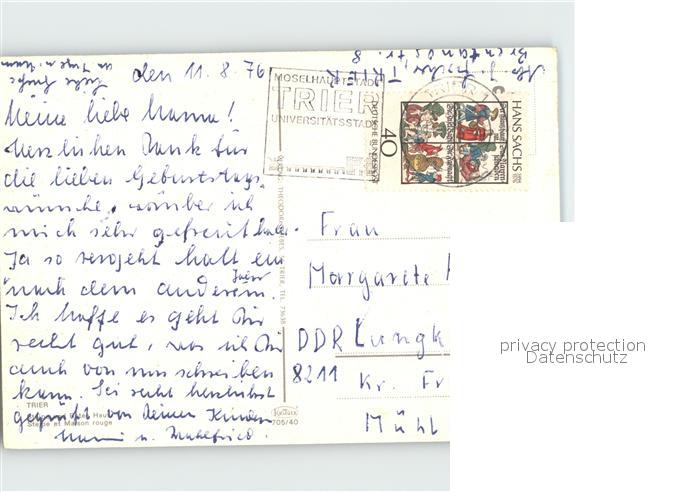 den 11.8.76
Meine liebe Mama!
Herzlichen Dank für
die lieben Geburtstags-
wünsche, worüber ich
mich sehr gefreut habe.
Ja so vergeht halt ein
Jahr
nach dem anderen.
Ich hoffe es geht Dir
recht gut, was ich Dir
auch von uns schreiben
kann. Sei recht herzlichst
gegrüßt von Deinen Kindern
u.
Liebe Grüße
Abs.
TRIER
Brentanostr. 8
MOSELHAUPTSTADT
TRIER
UNIVERSITÄTSSTADT
DEUTSCHE BUNDESPOST
40
HANS SACHS
Frau
Margarete
DDR Lungk
8211 Kr. Fr
Mühl
TRIER
Steipe et Maison rouge
Krüger
705/40
privacy protection
Datenschutz